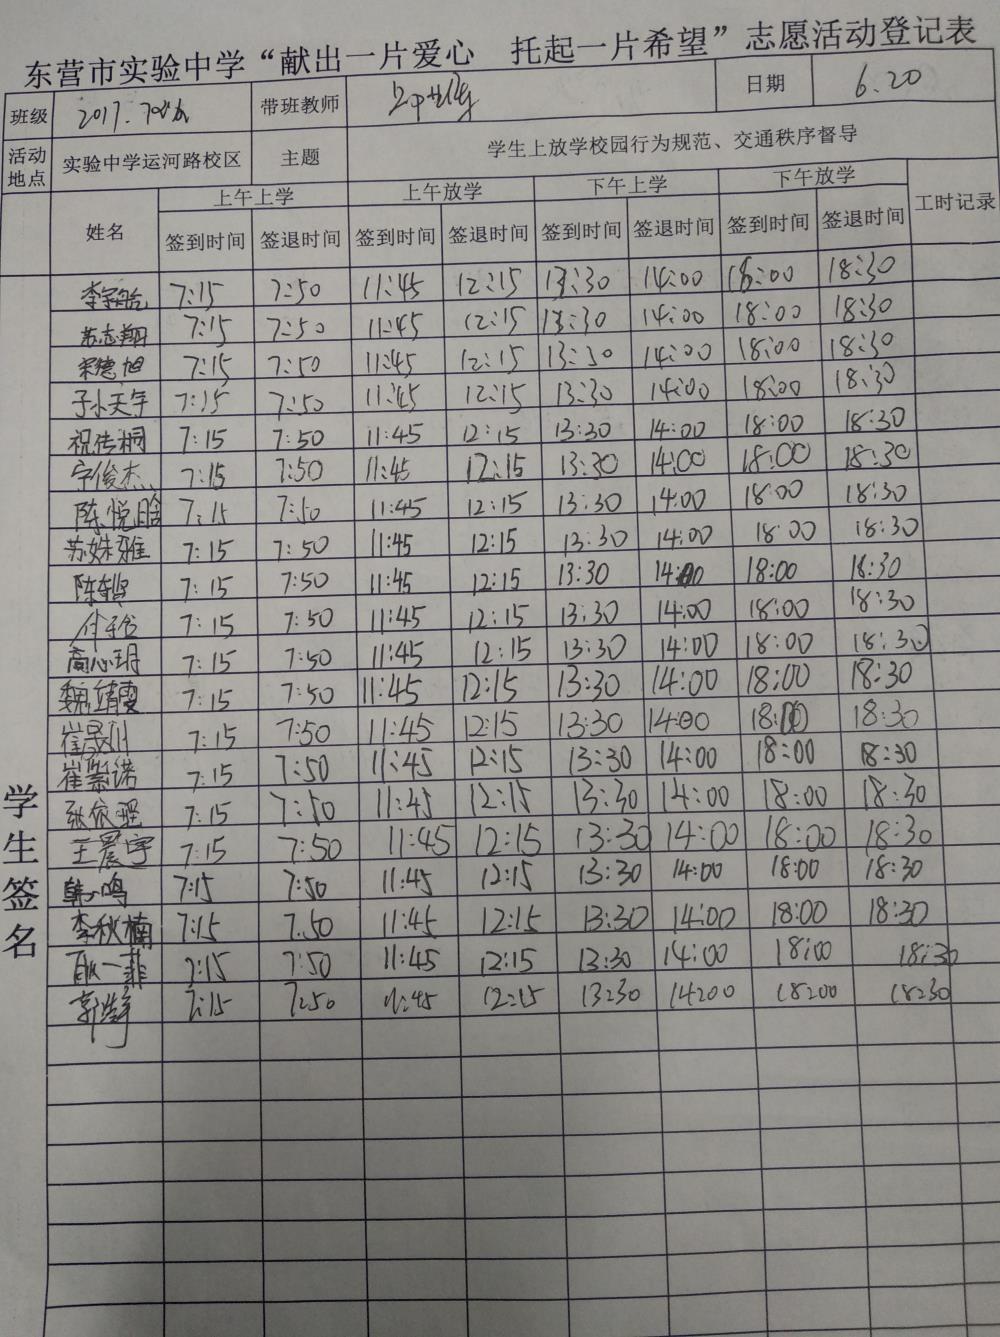 东营市实验中学“献出一片爱心 托起一片希望”志愿活动登记表
班级 2017. 带班教师 日期 6.20
活动地点 实验中学运河路校区 主题 学生上放学校园行为规范、交通秩序督导
上午上学 上午放学 下午上学 下午放学 工时记录
姓名 签到时间 签退时间 签到时间 签退时间 签到时间 签退时间 签到时间 签退时间
学生签名
7:15 7:50 11:45 12:15 13:30 14:00 18:00 18:30
苏志翔 7:15 7:50 11:45 12:15 13:30 14:00 18:00 18:30
宋德旭 7:15 7:50 11:45 12:15 13:30 14:00 18:00 18:30
7:15 7:50 11:45 12:15 13:30 14:00 18:00 18:30
祝传桐 7:15 7:50 11:45 12:15 13:30 14:00 18:00 18:30
宇俊杰 7:15 7:50 11:45 12:15 13:30 14:00 18:00 18:30
陈悦晗 7:15 7:50 11:45 12:15 13:30 14:00 18:00 18:30
苏姝雅 7:15 7:50 11:45 12:15 13:30 14:00 18:00 18:30
7:15 7:50 11:45 12:15 13:30 14:00 18:00 18:30
7:15 7:50 11:45 12:15 13:30 14:00 18:00 18:30
高心玥 7:15 7:50 11:45 12:15 13:30 14:00 18:00 18:30
魏靖雯 7:15 7:50 11:45 12:15 13:30 14:00 18:00 18:30
7:15 7:50 11:45 12:15 13:30 14:00 18:00 18:30
7:15 7:50 11:45 12:15 13:30 14:00 18:00 18:30
张依瑶 7:15 7:50 11:45 12:15 13:30 14:00 18:00 18:30
王震宇 7:15 7:50 11:45 12:15 13:30 14:00 18:00 18:30
韩一鸣 7:15 7:50 11:45 12:15 13:30 14:00 18:00 18:30
李秋楠 7:15 7:50 11:45 12:15 13:30 14:00 18:00 18:30
耿一菲 7:15 7:50 11:45 12:15 13:30 14:00 18:00 18:30
7:15 7:50 11:45 12:15 13:30 14:00 18:00 18:30